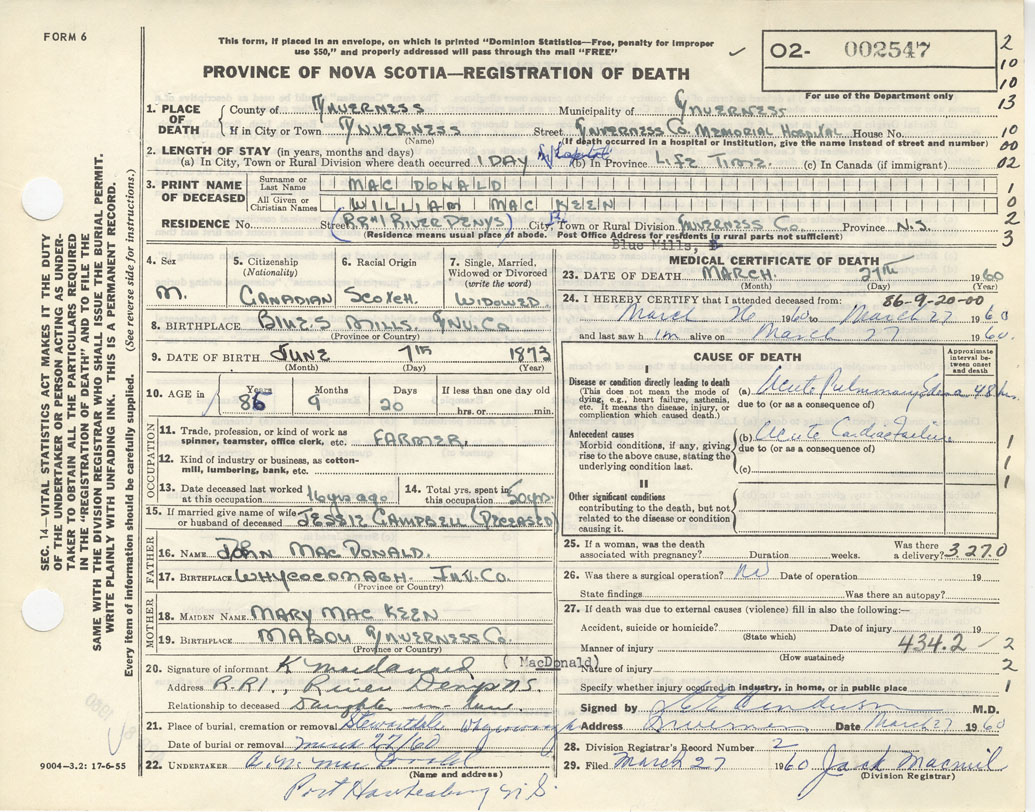 FORM 6
This form, if placed in an envelope, on which is printed "Dominion Statistics—Free, penalty for improper
use $50," and properly addressed will pass through the mail "FREE"
O2- 002547
For use of the Department only
PROVINCE OF NOVA SCOTIA—REGISTRATION OF DEATH
2
10
10
13
10
00
02
1
0
2
3
SEC. 14—VITAL STATISTICS ACT MAKES IT THE DUTY
OF THE UNDERTAKER OR PERSON ACTING AS UNDER-
TAKER TO OBTAIN ALL THE PARTICULARS REQUIRED
IN THE "REGISTRATION OF DEATH" AND TO FILE THE
SAME WITH THE DIVISION REGISTRAR WHO SHALL ISSUE THE BURIAL PERMIT.
WRITE PLAINLY WITH UNFADING INK. THIS IS A PERMANENT RECORD.
Every item of information should be carefully supplied. (See reverse side for instructions.)
1. PLACE OF DEATH County of INVERNESS Municipality of INVERNESS
If in City or Town INVERNESS Street INVERNESS CO. MEMORIAL HOSPITAL House No.
(Name) (If death occurred in a hospital or institution, give the name instead of street and number)
2. LENGTH OF STAY (in years, months and days)
(a) In City, Town or Rural Division where death occurred 1 DAY in Hospital (b) In Province LIFE TIME. (c) In Canada (if immigrant)
3. PRINT NAME OF DECEASED Surname or Last Name MAC DONALD
All Given or Christian Names WILLIAM MAC KEEN
RESIDENCE No. Street (RR#1 RIVER DENYS) City, Town or Rural Division INVERNESS CO. Province N.S.
(Residence means usual place of abode. Post Office Address for residents in rural parts not sufficient)
Blue Mills,
4. Sex M.
5. Citizenship (Nationality) CANADIAN
6. Racial Origin SCOTCH.
7. Single, Married, Widowed or Divorced (write the word) WIDOWED
8. BIRTHPLACE BLUE'S MILLS. INV. CO
(Province or Country)
9. DATE OF BIRTH JUNE 7TH 1873
(Month) (Day) (Year)
10. AGE in Years 86 Months 9 Days 20 If less than one day old hrs. or min.
OCCUPATION
11. Trade, profession, or kind of work as spinner, teamster, office clerk, etc. FARMER.
12. Kind of industry or business, as cotton-mill, lumbering, bank, etc.
13. Date deceased last worked at this occupation 16 yrs ago
14. Total yrs. spent in this occupation 50 yrs.
15. If married give name of wife or husband of deceased JESSIE CAMPBELL (DECEASED)
FATHER
16. NAME JOHN MAC DONALD.
17. BIRTHPLACE WHYCOCOMAGH. INV. CO.
(Province or Country)
MOTHER
18. MAIDEN NAME MARY MAC KEEN
19. BIRTHPLACE MABOU INVERNESS CO.
(Province or Country)
20. Signature of informant K MacDonald (MacDonald)
Address R.R1., River Denys N.S.
Relationship to deceased Daughter-in-law.
21. Place of burial, cremation or removal Stewartdale Whycocomagh
Date of burial or removal March 29/60
22. UNDERTAKER
(Name and address)
Port Hawkesbury N.S.
9004—3.2: 17-6-55
MEDICAL CERTIFICATE OF DEATH
23. DATE OF DEATH MARCH. 27TH 1960
(Month) (Day) (Year)
24. I HEREBY CERTIFY that I attended deceased from: 86-9-20-00
March 26 1960 to March 27 1960
and last saw him alive on March 27 1960.
CAUSE OF DEATH
Approximate interval between onset and death
I
Disease or condition directly leading to death
(This does not mean the mode of dying, e.g., heart failure, asthenia, etc. It means the disease, injury, or complication which caused death.)
(a) Acute Pulmonary Edema 48 hrs.
due to (or as a consequence of)
Antecedent causes
Morbid conditions, if any, giving rise to the above cause, stating the underlying condition last.
(b) Acute Cardiac Failure
due to (or as a consequence of)
(c)
1
1
1
II
Other significant conditions
contributing to the death, but not related to the disease or condition causing it.
25. If a woman, was the death associated with pregnancy? Duration weeks. Was there a delivery? 3270
26. Was there a surgical operation? no Date of operation 19
State findings Was there an autopsy?
27. If death was due to external causes (violence) fill in also the following:—
Accident, suicide or homicide? Date of injury 19
(State which)
Manner of injury 434.2
(How sustained)
Nature of injury
2
2
Specify whether injury occurred in industry, in home, or in public place 1
Signed by Henderson M.D.
Address Inverness Date March 27 1960
28. Division Registrar's Record Number 2
29. Filed March 27 1960 Jack Macneil
(Division Registrar)